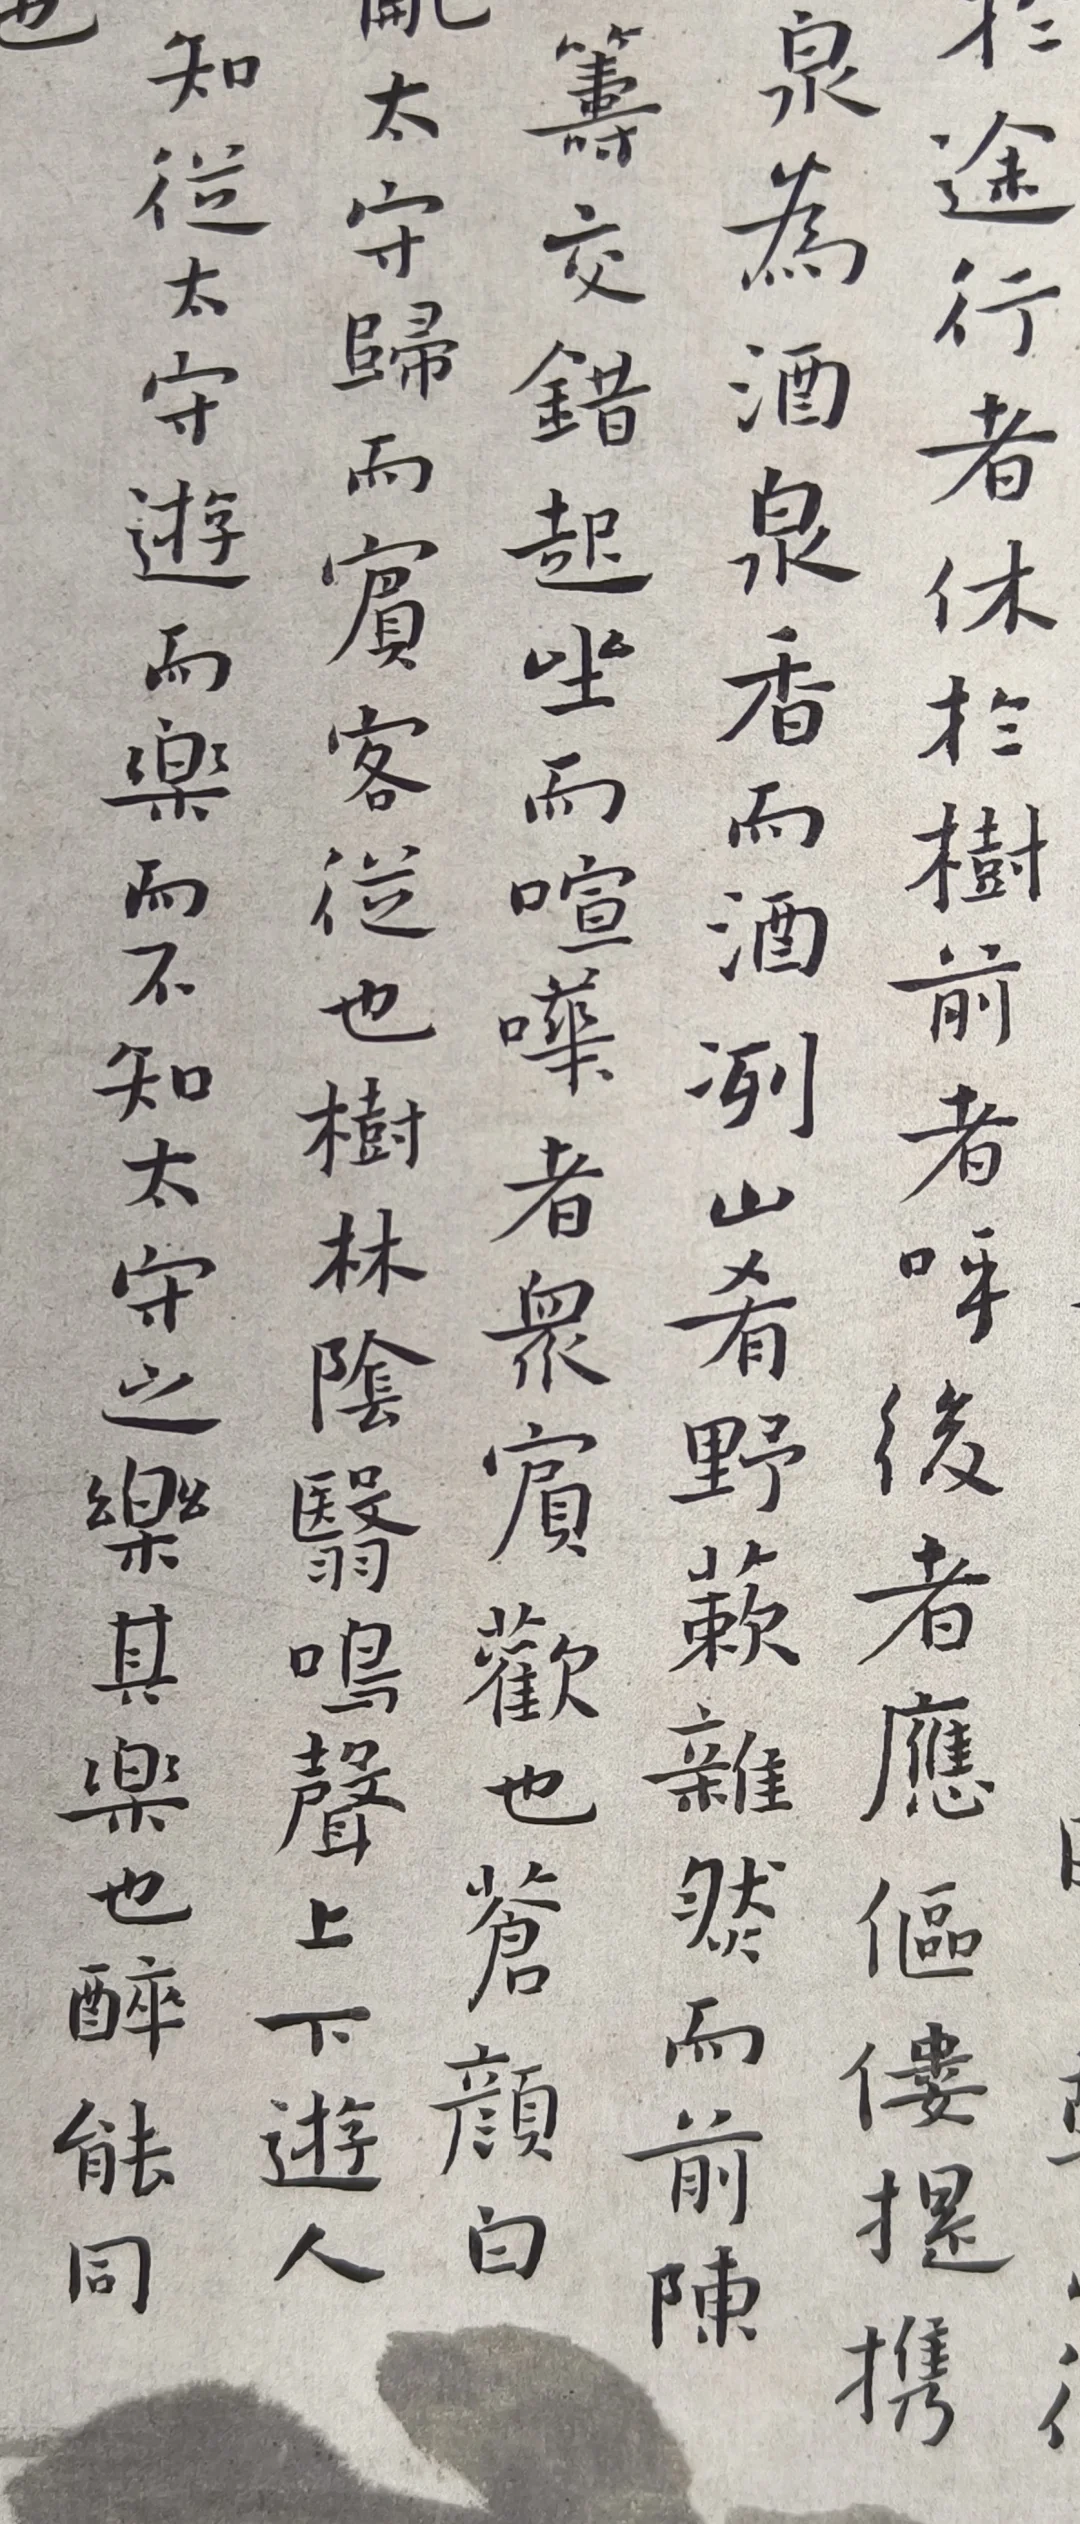 於途行者休於樹前者呼後者應傴僂提攜
泉為酒泉香而酒洌山肴野蔌雜然而前陳
籌交錯起坐而喧嘩者衆賓歡也蒼顏白
亂太守歸而賓客從也樹林陰翳鳴聲上下遊人
知從太守遊而樂而不知太守之樂其樂也醉能同
也